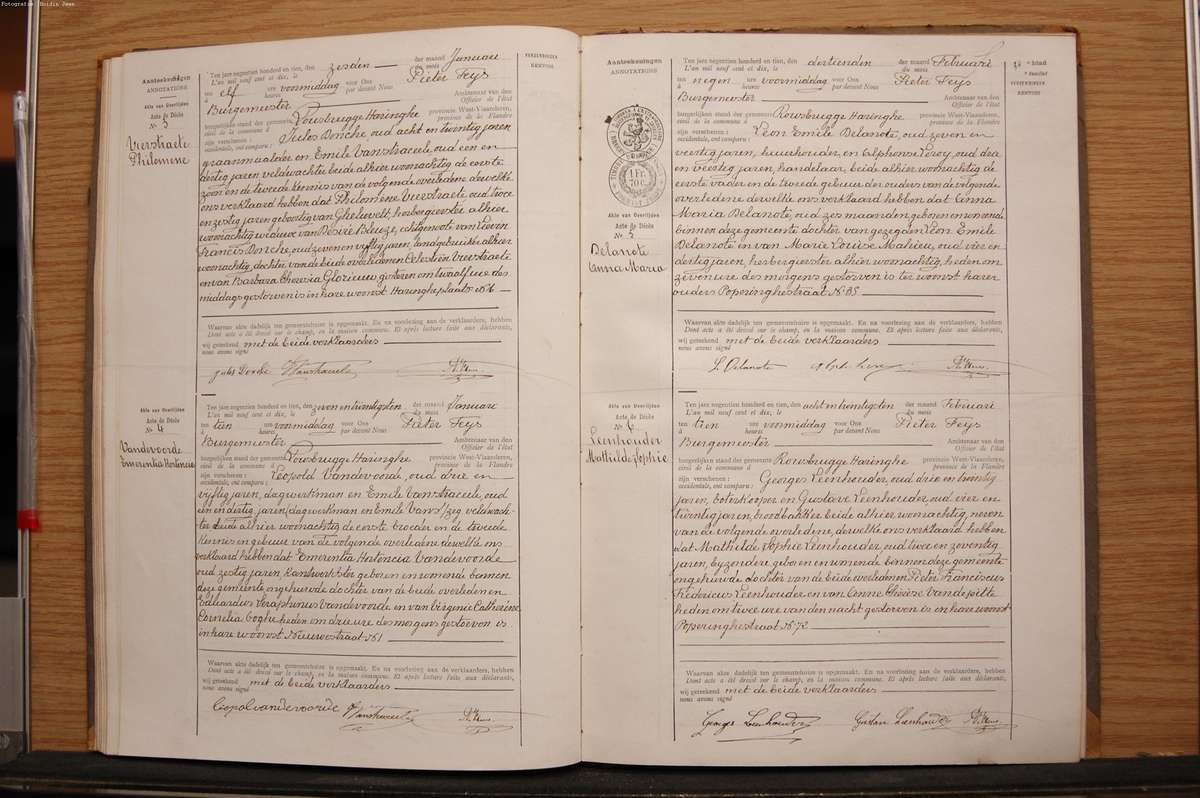 Fotografie: Boidin Jean
Aanteekeningen
ANNOTATIONS
Akte van Overlijden
Acte de Décès
№ 3
Verstraete
Philomene
VERZENDINGEN
RENVOIS
Ten jare negentien honderd en tien, den zesden der maand Januari
L'an mil neuf cent et dix, le du mois
ten elf ure voormiddag voor Ons Pieter Feys
à heures par devant Nous
Burgemeester Ambtenaar van den
Officier de l'état
burgerlijken stand der gemeente Rousbrugge Haringhe provincie West-Vlaanderen,
civil de la commune d province de la Flandre
zijn verschenen: Jules Donche oud acht en twintig jaren
occidentale, ont comparu:
graanmaalder en Emile Vanstraceele oud een en
dertig jaren veldwachter beide alhier woonachtig de eerste
zoon en de tweede kennis van de volgende overledene dewelke
ons verklaard hebben dat Philomene Verstraete oud twee
en zestig jaren geboortig van Gheluvelt, herbergierster alhier
woonachtig weduwe van Désiré Bleuzé, echtgenoote van Lieven
Francis Donche, oud zeven en vijftig jaren, landgebruiker alhier
woonachtig, dochter van de beide overledenen Celestin Verstraete
en van Barbara Theresia Glorieux, gisteren om twaalf ure des
middags gestorven is in hare woonst Haringheplaats № 6
Waarvan akte dadelijk ten gemeentehuize is opgemaakt. En na voorlezing aan de verklaarders, hebben
Dont acte a été dressé sur le champ, en la maison commune. Et après lecture faite aux déclarants,
wij geteekend met de beide verklaarders
nous avons signé
Jules Donche
Akte van Overlijden
Acte de Décès
№ 4
Vandervoorde
Emerentia Hortencia
Ten jare negentien honderd en tien, den zeven en twintigsten der maand Januari
L'an mil neuf cent et dix, le du mois
ten tien ure voormiddag voor Ons Pieter Feys
à heures par devant Nous
Burgemeester Ambtenaar van den
Officier de l'état
burgerlijken stand der gemeente Rousbrugge Haringhe provincie West-Vlaanderen,
civil de la commune d province de la Flandre
zijn verschenen: Leopold Vandevoorde, oud drie en
occidentale, ont comparu:
vijftig jaren, dagwerkman en Emile Vanstraceele, oud
een en dertig jaren, dagwerkman en Emile veldwach-
ter beide alhier woonachtig de eerste broeder en de tweede
kennis en gebuur van de volgende overledene dewelke ons
verklaard hebben dat Emerentia Hortencia Vandevoorde
oud zestig jaren, kantwerkster geboren en wonende binnen
deze gemeente ongehuwde dochter van de beide overledenen
Eduardus Seraphinus Vandevoorde en van Virginie Catherine
Cornelia Goghe, heden om drie ure des morgens gestorven is
in hare woonst Nieuwestraat № 1
Waarvan akte dadelijk ten gemeentehuize is opgemaakt. En na voorlezing aan de verklaarders, hebben
Dont acte a été dressé sur le champ, en la maison commune. Et après lecture faite aux déclarants,
wij geteekend met de beide verklaarders
nous avons signé
Leopol vandevoorde
Aanteekeningen
ANNOTATIONS
1 Fr.
70 C.
Akte van Overlijden
Acte de Décès
№ 5
Delanote
Anna Maria
VERZENDINGEN
RENVOIS
Ten jare negentien honderd en tien, den dertienden der maand Februari
L'an mil neuf cent et dix, le du mois
ten negen ure voormiddag voor Ons Pieter Feys
à heures par devant Nous
Burgemeester Ambtenaar van den
Officier de l'état
burgerlijken stand der gemeente Rousbrugge Haringhe provincie West-Vlaanderen,
civil de la commune d province de la Flandre
zijn verschenen: Leon Emile Delanote, oud zeven en
occidentale, ont comparu:
veertig jaren, huurhouder, en Alphonse Leroy, oud drie
en veertig jaren, handelaar, beide alhier woonachtig de
eerste vader en de tweede gebuur der ouders van de volgende
overledene dewelke ons verklaard hebben dat Anna
Maria Delanote, oud zes maanden geboren en wonende
binnen deze gemeente, dochter van gezegden Leon Emile
Delanote en van Marie Louise Mahieu, oud vier en
dertig jaren, herbergierster alhier woonachtig, heden om
zeven ure des morgens gestorven is ter woonst harer
ouders Poperinghestraat № 85
Waarvan akte dadelijk ten gemeentehuize is opgemaakt. En na voorlezing aan de verklaarders, hebben
Dont acte a été dressé sur le champ, en la maison commune. Et après lecture faite aux déclarants,
wij geteekend met de beide verklaarders
nous avons signé
L. Delanote
Akte van Overlijden
Acte de Décès
№ 6
Leenhouder
Mathilde Sophie
Ten jare negentien honderd en tien, den acht en twintigsten der maand Februari
L'an mil neuf cent et dix, le du mois
ten tien ure voormiddag voor Ons Pieter Feys
à heures par devant Nous
Burgemeester Ambtenaar van den
Officier de l'état
burgerlijken stand der gemeente Rousbrugge Haringhe provincie West-Vlaanderen,
civil de la commune d province de la Flandre
zijn verschenen: Georges Leenhouder, oud drie en twintig
occidentale, ont comparu:
jaren, boterkooper en Gustave Leenhouder oud vier en
twintig jaren, broodbakker beide alhier woonachtig, neven
van de volgende overledene, dewelke ons verklaard hebben
dat Mathilde Sophie Leenhouder oud twee en zeventig
jaren, byzondere geboren en wonende binnen deze gemeente
ongehuwde dochter van de beide overledenen Pieter Franciscus
Federicus Leenhouder en van Anne Thérèse Vandepitte
heden om twee ure van den nacht gestorven is in hare woonst
Poperinghestraat № 72
Waarvan akte dadelijk ten gemeentehuize is opgemaakt. En na voorlezing aan de verklaarders, hebben
Dont acte a été dressé sur le champ, en la maison commune. Et après lecture faite aux déclarants,
wij geteekend met de beide verklaarders
nous avons signé
Georges Leenhouder Gustave Leenhouder